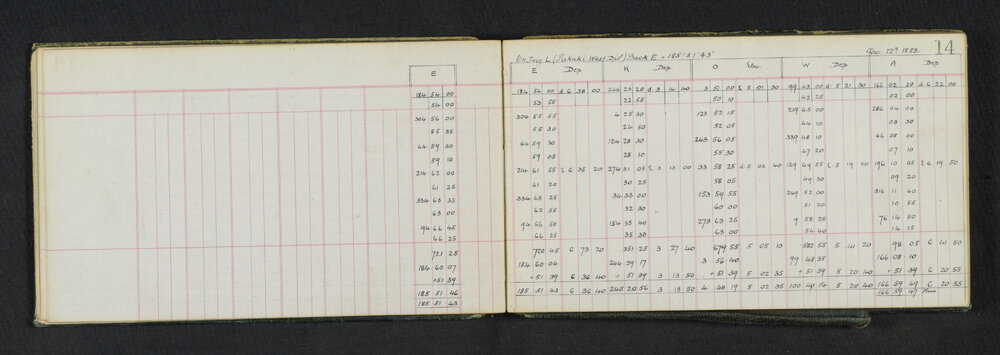 E
184 54 00
54 00
304 56 00
55 35
64 59 30
59 10
214 62 00
61 25
334 63 35
63 00
94 66 45
66 25
721 25
184 60 07
+51 39
185 51 46
185 51 43
On Trig L (Pukaki West Dist) Back E = 185° 51' 43" Dec. 12th 1883. 14
E Dep K Dep O Elev. W Dep A Dep
184 54 00 d 6 38 00 244 23 20 d 3 14 40 3 51 00 E 5 01 30 99 43 00 d 5 21 30 166 02 20 d 6 22 00
53 55 22 55 50 10 42 25 02 00
304 55 55 4 25 30 123 52 15 219 45 00 286 04 00
55 30 24 50 52 05 44 10 03 30
64 59 30 124 28 30 243 56 05 339 48 10 46 08 00
59 05 28 10 55 30 47 20 07 10
214 61 55 E 6 35 20 274 31 05 E 3 13 00 33 58 25 d 5 03 40 129 49 55 E 5 19 50 196 10 05 E 6 19 50
61 20 30 25 58 05 49 30 09 20
334 63 25 34 33 00 153 59 55 249 52 00 316 11 40
62 55 32 30 60 00 51 20 10 55
94 66 50 154 35 40 273 63 25 9 55 25 76 14 50
66 25 35 30 63 00 54 40 14 15
720 45 6 73 20 351 25 3 27 40 679 55 5 05 10 582 55 5 41 20 98 05 6 41 50
184 60 04 244 29 17 3 56 40 99 48 35 166 08 10
+51 39 6 36 40 + 51 39 3 13 50 +51 39 5 02 35 +51 39 5 20 40 +51 39 6 20 55
185 51 43 6 36 40 245 20 56 3 13 50 4 48 19 5 02 35 100 40 14 5 20 40 166 59 49 6 20 55
166 59 47